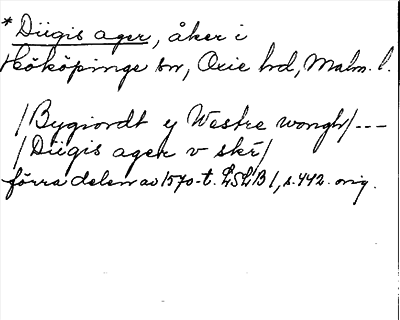 *Diigis ager, åker i
Hököpinge sn, Oxie hd, Malm. l.
/Bygiordt ij Westre wongh/---
/Diigis ager v ské/
förra delen av 1570-t. LSLB 1, s. 442. orig.